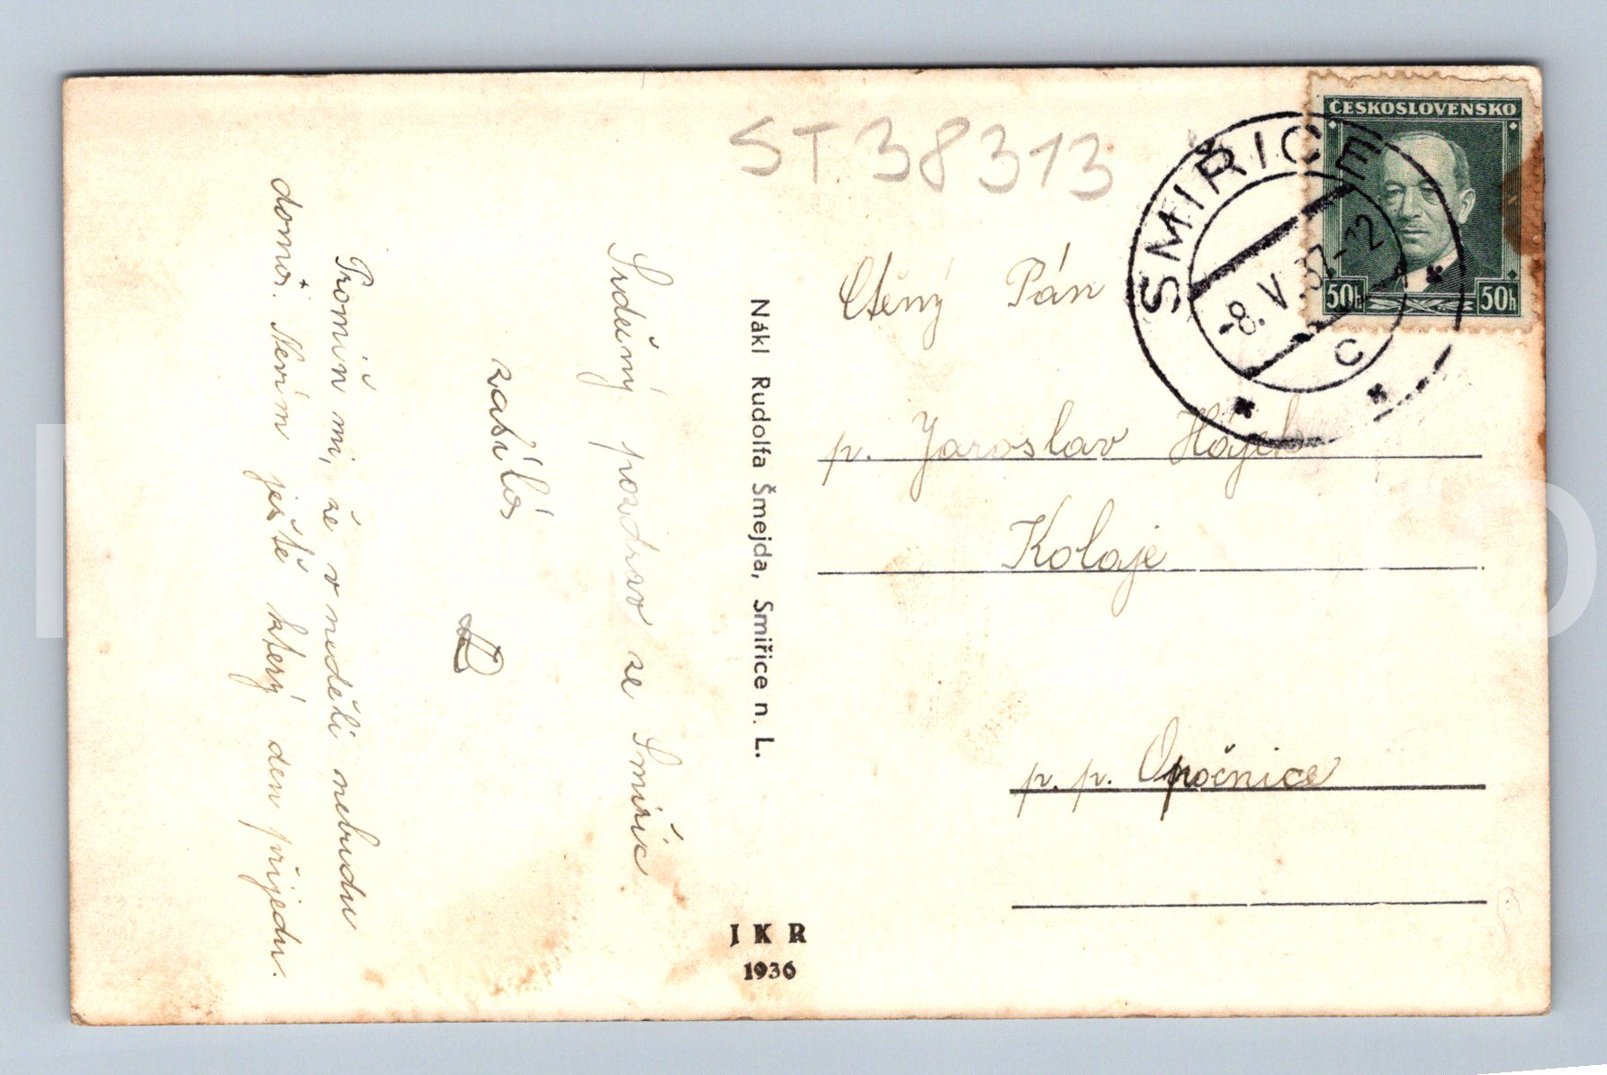 Srdečný pozdrav ze Smiřic
zasílá
Promiň mi, že v neděli nebudu
doma. Nevím ještě který den přijedu.
Nákl Rudolfa Šmejda, Smiřice n. L.
JKR
1936
ST 38313
Ctěný Pán
p. Jaroslav Hájek
Koloje
p. p. Opočnice
ČESKOSLOVENSKO
50h 50h
SMIŘICE
-8.V.37-12
C